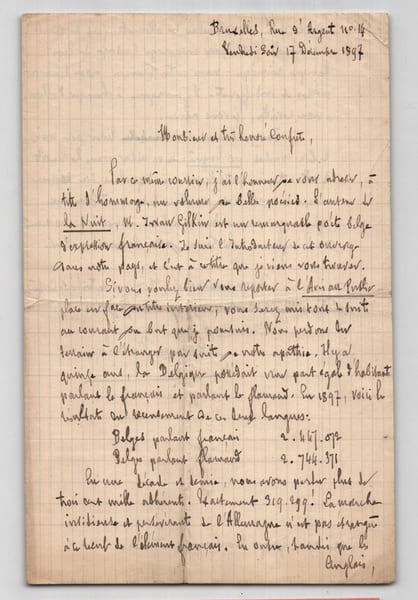 Bruxelles, Rue d'Argent no. 14
Vendredi Soir 17 Décembre 1897
Monsieur et très honoré Confrère,
Par ce même courrier, j'ai l'honneur de vous adresser, à
titre d'hommage, un volume de belle poésies. L'auteur de
la Nuit, M. Iwan Gilkin est un remarquable poète belge
d'expression française. Je suis l'Introducteur de cet ouvrage
dans votre pays, et c'est à ce titre que je viens vous trouver.
Si vous voulez bien vous reporter à l'Avis au Public
placé en face du titre intérieur, vous serez mis tout de suite
au courant du but que je poursuis. Nous perdons du
terrain à l'étranger par suite de notre apathie. Il y a
quinze ans, la Belgique possédait une part égale d'habitants
parlant le français et parlant le flamand. En 1897, voici le
résultats du recensement de ces deux langues:
Belges parlant français 2.447.072
Belges parlant flamand 2.744.371
En une décade et demie, nous avons perdu plus de
trois cent mille adhérents. Exactement 319.299! La marche
insidieuse et persévérante de l'Allemagne n'est pas étrangère
à ce recul de l'élément français. En outre, tandis que les
Anglais,